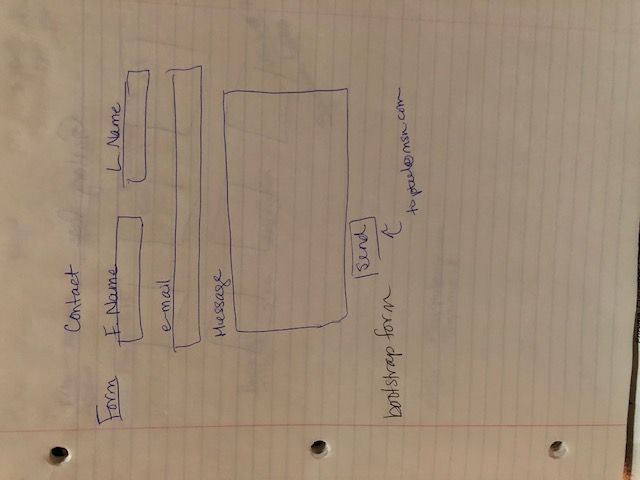 Contact
Form F. Name L Name
e-mail
Message
Send
bootstrap form